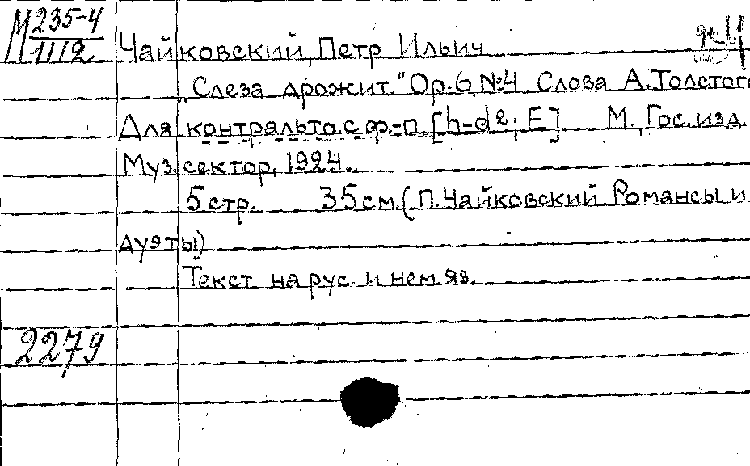 М 235-4
1112
Чайковский, Петр Ильич
"Слеза дрожит." Ор.6 №4 Слова А.Толстого
Для контральто с ф-п. [h-d2; E] М., Гос. изд.
Муз. сектор, 1924.
5 стр. 35 см. (П. Чайковский Романсы и
дуэты)
Текст на рус. и нем. яз.
2279